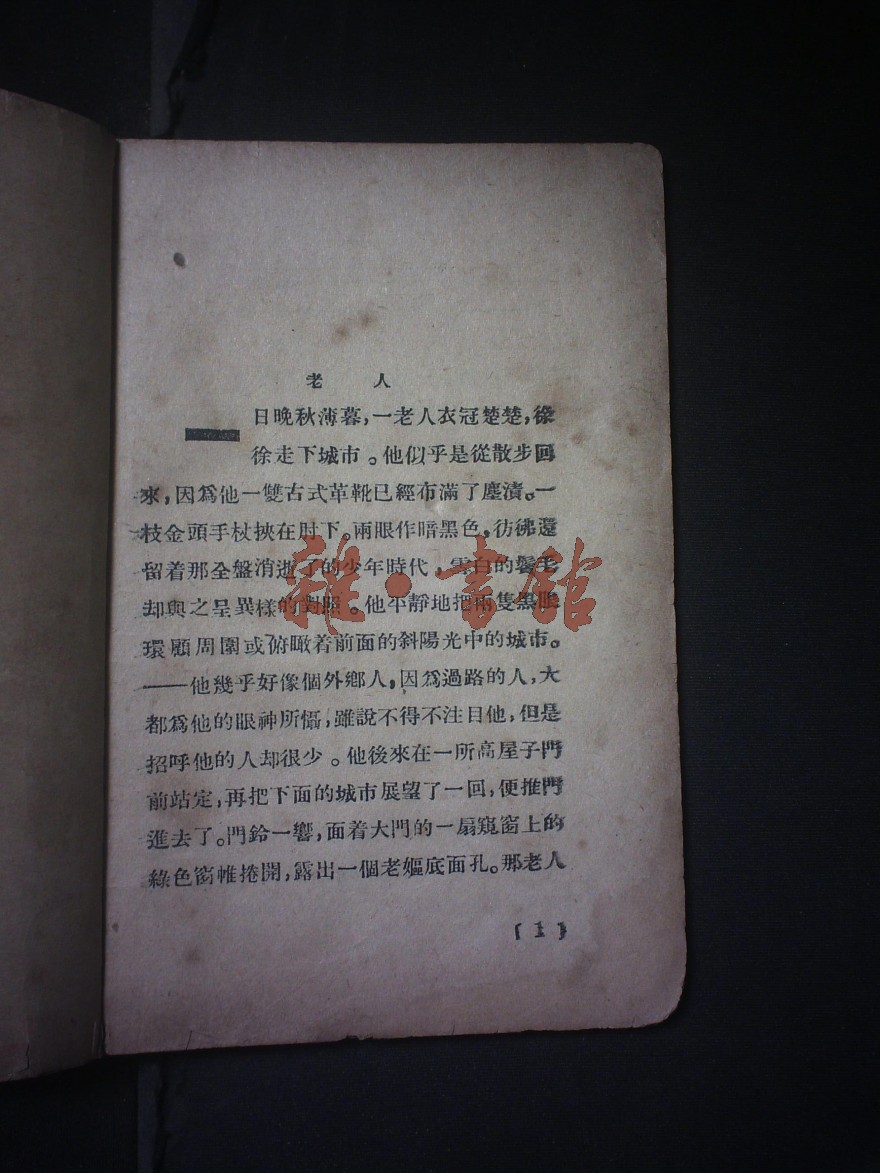 老 人
一日晚秋薄暮，一老人衣冠楚楚，徐
徐走下城市。他似乎是從散步回
來，因爲他一雙古式革靴已經布滿了塵漬。一
枝金頭手杖挾在肘下。兩眼作暗黑色，彷彿還
留着那全盤消逝了的少年時代，雪白的鬢毛
却與之呈異樣的對照。他平靜地把兩隻黑眼
環顧周圍或俯瞰着前面的斜陽光中的城市。
——他幾乎好像個外鄉人，因爲過路的人，大
都爲他的眼神所懾，雖說不得不注目他，但是
招呼他的人却很少。他後來在一所高屋子門
前站定，再把下面的城市展望了一回，便推門
進去了。門鈴一響，面着大門的一扇窺窗上的
綠色窗帷捲開，露出一個老嫗底面孔。那老人
〔1〕
雜·書館